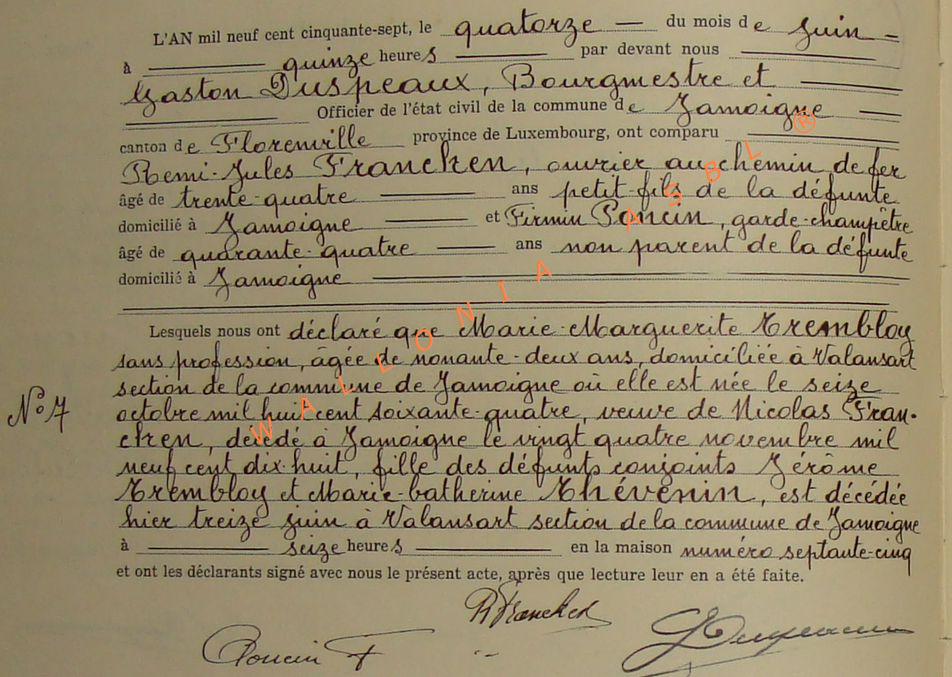 L'AN mil neuf cent cinquante-sept, le quatorze — du mois de juin —
à quinze heures par devant nous
Gaston Duspeaux, Bourgmestre et
Officier de l'état civil de la commune de Jamoigne
canton de Florenville province de Luxembourg, ont comparu
Remi-Jules Francken, ouvrier au chemin de fer
âgé de trente-quatre ans petit-fils de la défunte
domicilié à Jamoigne et Firmin Poncin, garde-champêtre
âgé de quarante-quatre ans non parent de la défunte
domicilié à Jamoigne
Lesquels nous ont déclaré que Marie-Marguerite Trembloy
sans profession, âgée de nonante-deux ans, domiciliée à Valansart
section de la commune de Jamoigne où elle est née le seize
N° 7
octobre mil huit cent soixante-quatre, veuve de Nicolas Fran-
cken, décédé à Jamoigne le vingt quatre novembre mil
neuf cent dix-huit, fille des défunts conjoints Jérôme
Trembloy et Marie-Catherine Thévenin, est décédée
hier treize juin à Valansart section de la commune de Jamoigne
à seize heures en la maison numéro septante-cinq
et ont les déclarants signé avec nous le présent acte, après que lecture leur en a été faite.
R Francken
Poncin F
G Duspeaux
WALLONIA ASBL ®